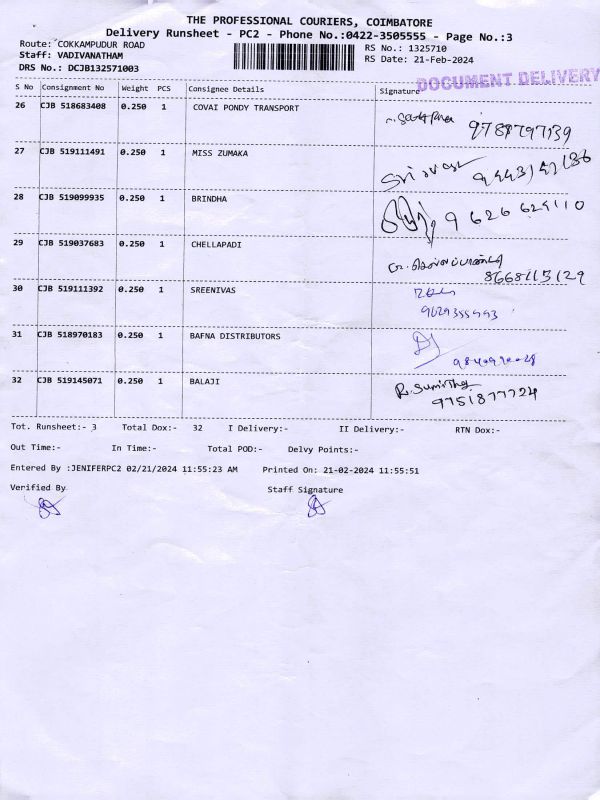 THE PROFESSIONAL COURIERS, COIMBATORE
Delivery Runsheet - PC2 - Phone No.:0422-3505555 - Page No.:3
Route: COKKAMPUDUR ROAD
RS No.: 1325710
Staff: VADIVANATHAM
RS Date: 21-Feb-2024
DRS No.: DCJB132571003
DOCUMENT DELIVERY
S No Consignment No Weight PCS Consignee Details Signature
26 CJB 518683408 0.250 1 COVAI PONDY TRANSPORT 9787797139
27 CJB 519111491 0.250 1 MISS ZUMAKA
28 CJB 519099935 0.250 1 BRINDHA 9626629110
29 CJB 519037683 0.250 1 CHELLAPADI
8668115129
30 CJB 519111392 0.250 1 SREENIVAS
9629355993
31 CJB 518970183 0.250 1 BAFNA DISTRIBUTORS
32 CJB 519145071 0.250 1 BALAJI
9751877724
Tot. Runsheet:- 3 Total Dox:- 32 I Delivery:- II Delivery:- RTN Dox:-
Out Time:- In Time:- Total POD:- Delvy Points:-
Entered By :JENIFERPC2 02/21/2024 11:55:23 AM Printed On: 21-02-2024 11:55:51
Verified By Staff Signature